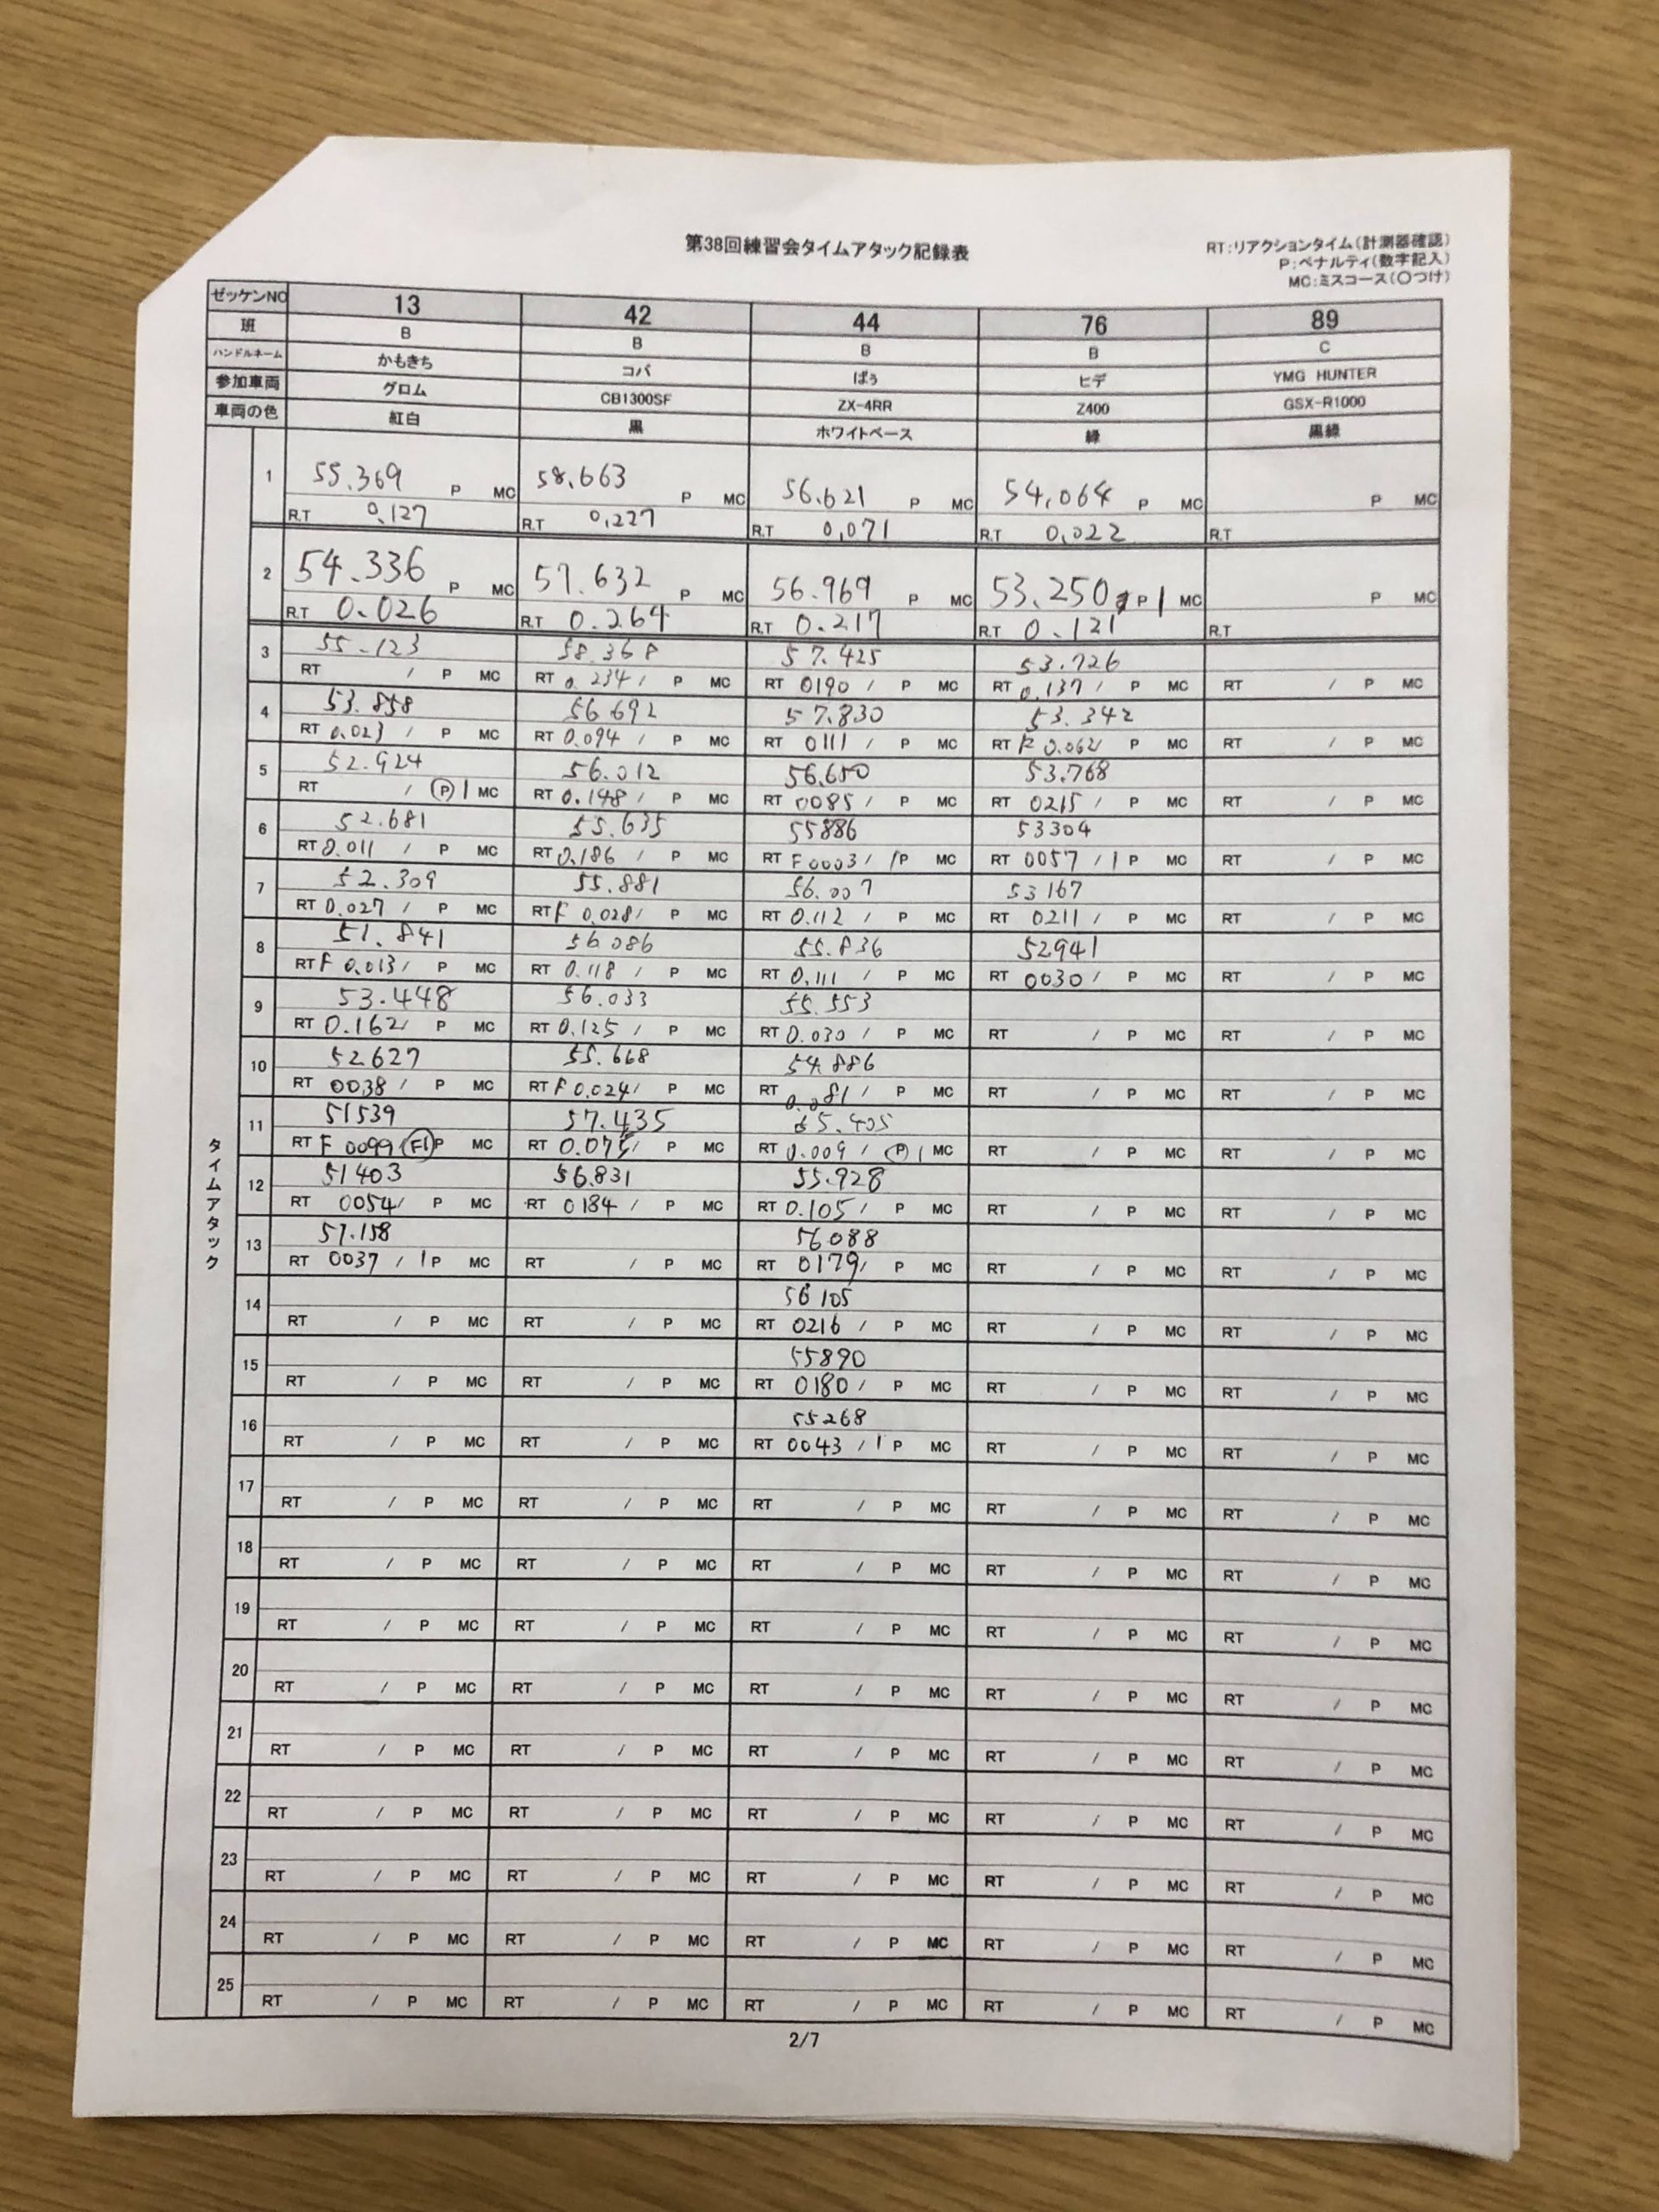 第38回練習会タイムアタック記録表
RT:リアクションタイム(計測器確認)
P:ペナルティ(数字記入)
MC:ミスコース(〇つけ)
ゼッケンNO 13 42 44 76 89
班 B B B B C
ハンドルネーム かもきち コバ ぱぅ ヒデ YMG HUNTER
参加車両 グロム CB1300SF ZX-4RR Z400 GSX-R1000
車両の色 紅白 黒 ホワイトベース 緑 黒緑
タイムアタック
1 55.369 P MC 58.663 P MC 56.621 P MC 54.064 P MC P MC
R.T 0.127 R.T 0.227 R.T 0.071 R.T 0.022 R.T
2 54.336 P MC 57.632 P MC 56.969 P MC 53.250 P 1 MC P MC
R.T 0.026 R.T 0.264 R.T 0.217 R.T 0.121 R.T
3 55.123 58.368 57.425 53.726
RT / P MC RT 0.234 / P MC RT 0190 / P MC RT 0.137 / P MC RT / P MC
4 53.858 56.692 57.830 53.342
RT 0.023 / P MC RT 0.094 / P MC RT 0111 / P MC RT F 0.062 / P MC RT / P MC
5 52.924 56.012 56.650 53.768
RT / P 1 MC RT 0.148 / P MC RT 0085 / P MC RT 0215 / P MC RT / P MC
6 52.681 55.635 55886 53304
RT 0.011 / P MC RT 0.186 / P MC RT F 0003 / 1P MC RT 0057 / 1 P MC RT / P MC
7 52.309 55.881 56.007 53167
RT 0.027 / P MC RT F 0.028 / P MC RT 0.112 / P MC RT 0211 / P MC RT / P MC
8 51.841 56.086 55.836 52941
RT F 0.013 / P MC RT 0.118 / P MC RT 0.111 / P MC RT 0030 / P MC RT / P MC
9 53.448 56.033 55.553
RT 0.162 / P MC RT 0.125 / P MC RT 0.030 / P MC RT / P MC RT / P MC
10 52627 55.668 54.886
RT 0038 / P MC RT F 0.024 / P MC RT 0.081 / P MC RT / P MC RT / P MC
11 51539 57.435 55.405
RT F 0099 F1 P MC RT 0.075 / P MC RT 0.009 / P 1 MC RT / P MC RT / P MC
12 51403 56.831 55.928
RT 0054 / P MC RT 0184 / P MC RT 0.105 / P MC RT / P MC RT / P MC
13 51.158 56088
RT 0037 / 1P MC RT / P MC RT 0179 / P MC RT / P MC RT / P MC
14 56105
RT / P MC RT / P MC RT 0216 / P MC RT / P MC RT / P MC
15 55890
RT / P MC RT / P MC RT 0180 / P MC RT / P MC RT / P MC
16 55268
RT / P MC RT / P MC RT 0043 / 1 P MC RT / P MC RT / P MC
17
RT / P MC RT / P MC RT / P MC RT / P MC RT / P MC
18
RT / P MC RT / P MC RT / P MC RT / P MC RT / P MC
19
RT / P MC RT / P MC RT / P MC RT / P MC RT / P MC
20
RT / P MC RT / P MC RT / P MC RT / P MC RT / P MC
21
RT / P MC RT / P MC RT / P MC RT / P MC RT / P MC
22
RT / P MC RT / P MC RT / P MC RT / P MC RT / P MC
23
RT / P MC RT / P MC RT / P MC RT / P MC RT / P MC
24
RT / P MC RT / P MC RT / P MC RT / P MC RT / P MC
25
RT / P MC RT / P MC RT / P MC RT / P MC RT / P MC
2/7